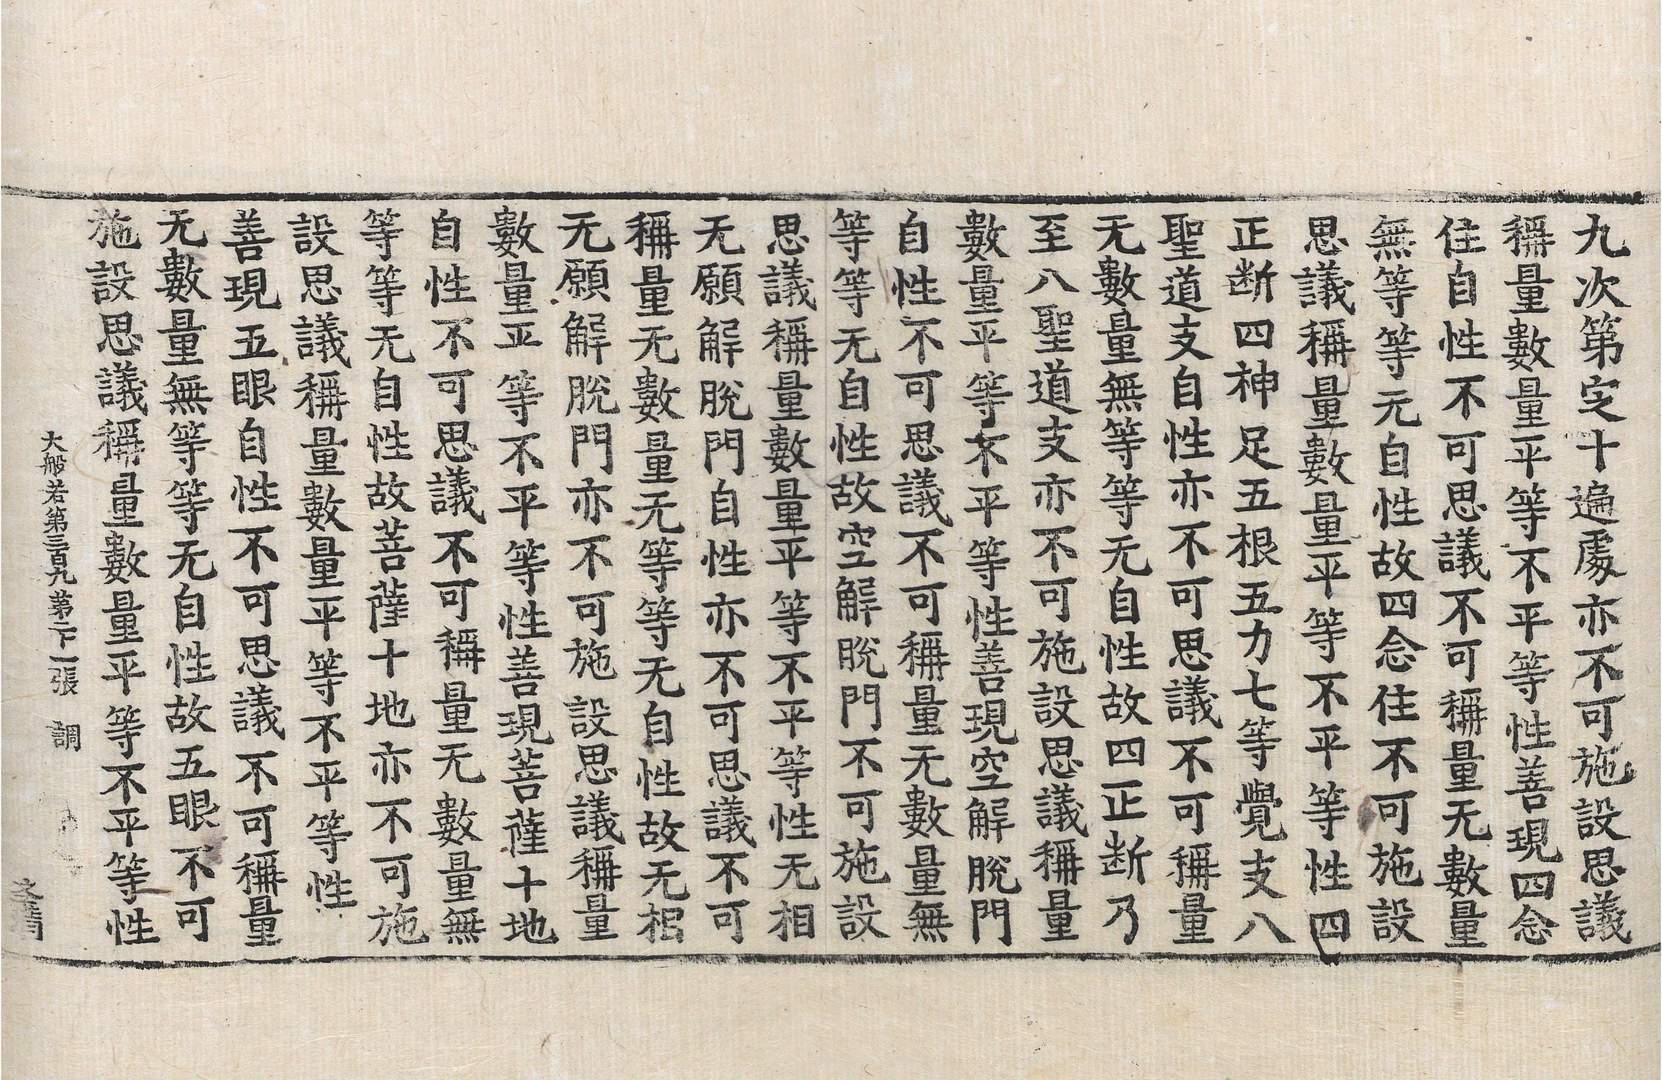 九次第定十遍處亦不可施設思議
稱量數量平等不平等性善現四念
住自性不可思議不可稱量无數量
無等等无自性故四念住不可施設
思議稱量數量平等不平等性四
正断四神足五根五力七等覺支八
聖道支自性亦不可思議不可稱量
无數量無等等无自性故四正断乃
至八聖道支亦不可施設思議稱量
數量平等不平等性善現空解脫門
自性不可思議不可稱量无數量無
等等无自性故空解脫門不可施設
思議稱量數量平等不平等性无相
无願解脫門自性亦不可思議不可
稱量无數量无等等无自性故无相
无願解脫門亦不可施設思議稱量
數量平等不平等性善現菩薩十地
自性不可思議不可稱量无數量無
等等无自性故菩薩十地亦不可施
設思議稱量數量平等不平等性
善現五眼自性不可思議不可稱量
无數量無等等无自性故五眼不可
施設思議稱量數量平等不平等性
大般若第三百九 第二下一張 調